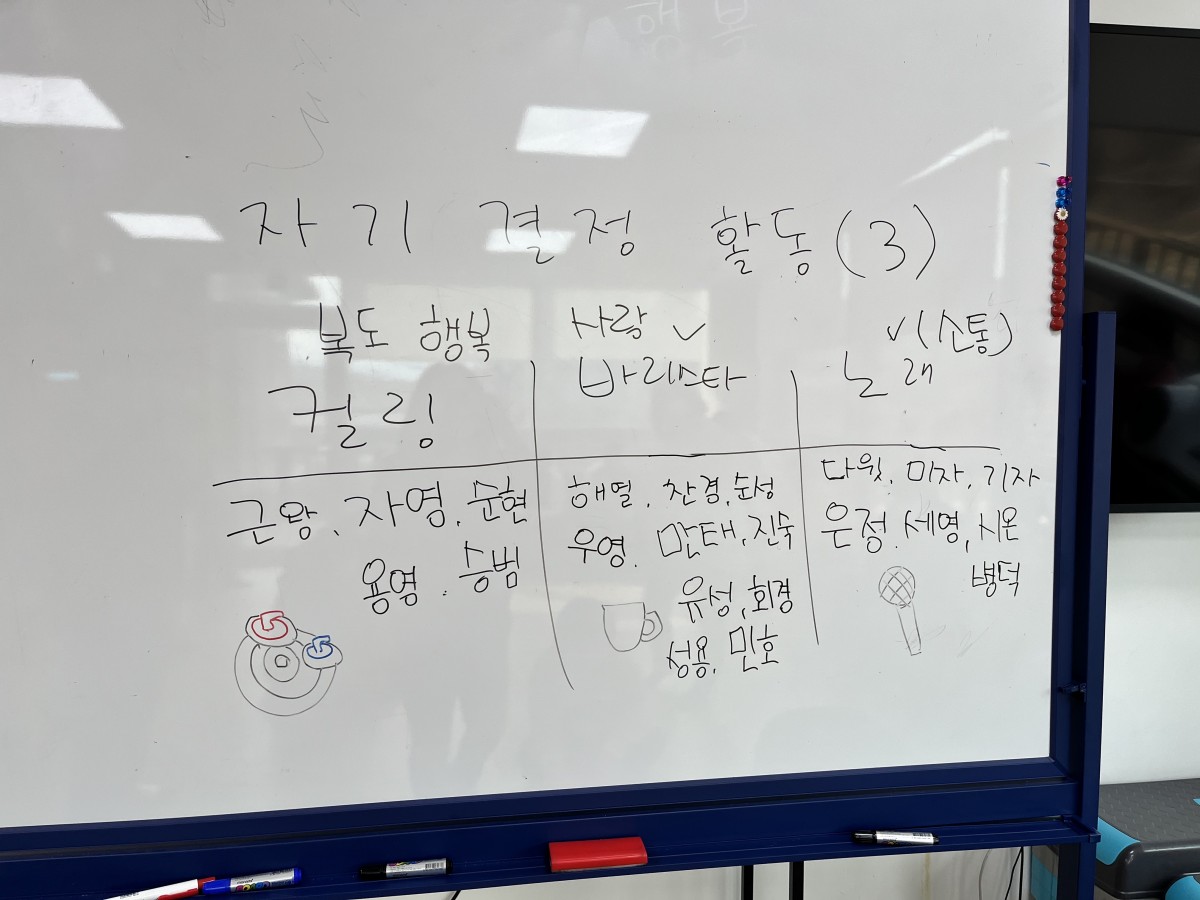 행복
자기 결정 활동(3)
복도 행복
컬링
사랑 ✓
바리스타
✓(소통)
노래
근왕, 자영, 순현
용영, 승범
해열, 찬경, 순성
우영, 만태, 진숙
유성, 회경
성용, 민호
다윗, 미자, 기자
은정, 세영, 시온
병덕